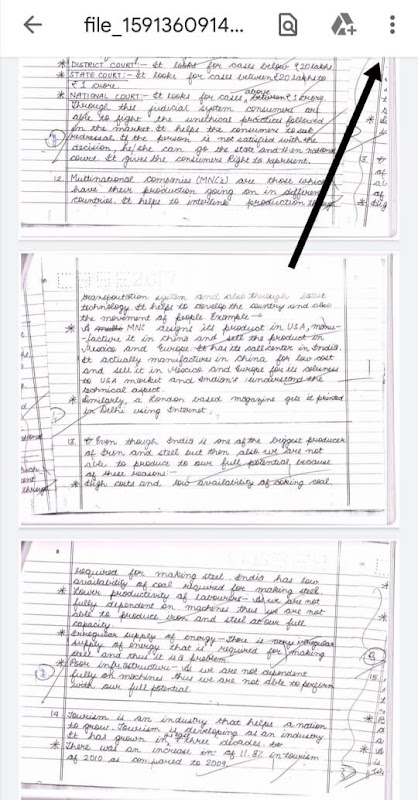 file_1591360914...
* DISTRICT COURT:- It looks for cases below ₹20 lakhs.
* STATE COURT:- It looks for cases between ₹20 lakhs to
₹1 crore.
* NATIONAL COURT:- It looks for cases above ₹1 crore.
Through this judicial system consumers are
able to fight the unethical practices followed
in the market. It helps the consumers to seek
redressal. If the person is not satisfied with the
decision, he/she can go the state and then national
court. It gives the consumers Right to represent.
12. Multinational companies (MNCs) are those which
have their production going on in different
countries. It helps to interlink production through
transportation system and also through latest
technology. It helps to develop the country and also
the movement of people. Example →
* A MNC designs its product in USA, manu-
-facture it in China and sell the product in
Mexico and Europe. It has its call center in India.
It actually manufacture in China for low cost
and sell it in Mexico and Europe for its closeness
to USA market and Indian's understand the
technical aspect.
* Similarly, a London based magazine gets is printed
in Delhi using Internet.
13. Even though India is one of the biggest producer
of Iron and steel but then also we are not
able to produce to our full potential because
of these reasons:-
* High costs and low availability of coking coal
required for making steel. India has low
availability of coal required for making steel
* Lower productivity of labourers - As we are not
fully dependent on machines thus we are not
able to produce iron and steel at our full
capacity.
* Irregular supply of energy - There is irregular
supply of energy that is required for making
steel and thus it is a problem.
* Poor infrastructure - As we are not dependent
fully on machines thus we are not able to perform
with our full potential.
14. Tourism is an industry that helps a nation
to grow. Tourism is developing as an industry
It has grown in three decades.
* There was an increase in of 11.8% in tourism
of 2010 as compared to 2009.